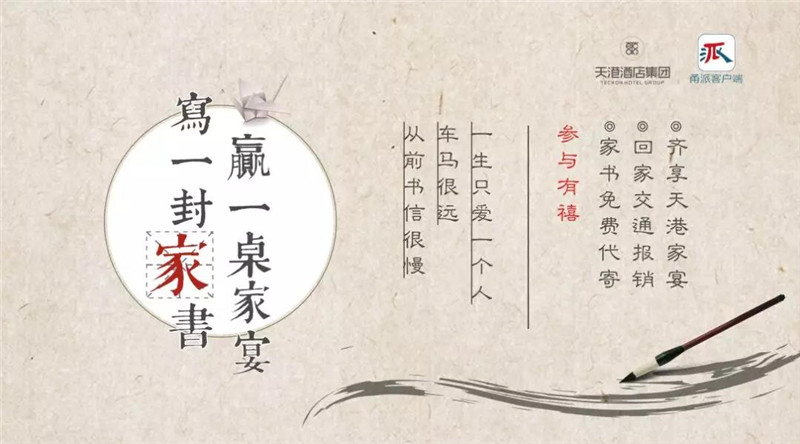 天港酒店集团
TECKON HOTEL GROUP
派
甬派客户端
寫一封家書
贏一桌家宴
从前书信很慢
车马很远
一生只爱一个人
参与有禧
◎家书免费代寄
◎回家交通报销
◎齐享天港家宴